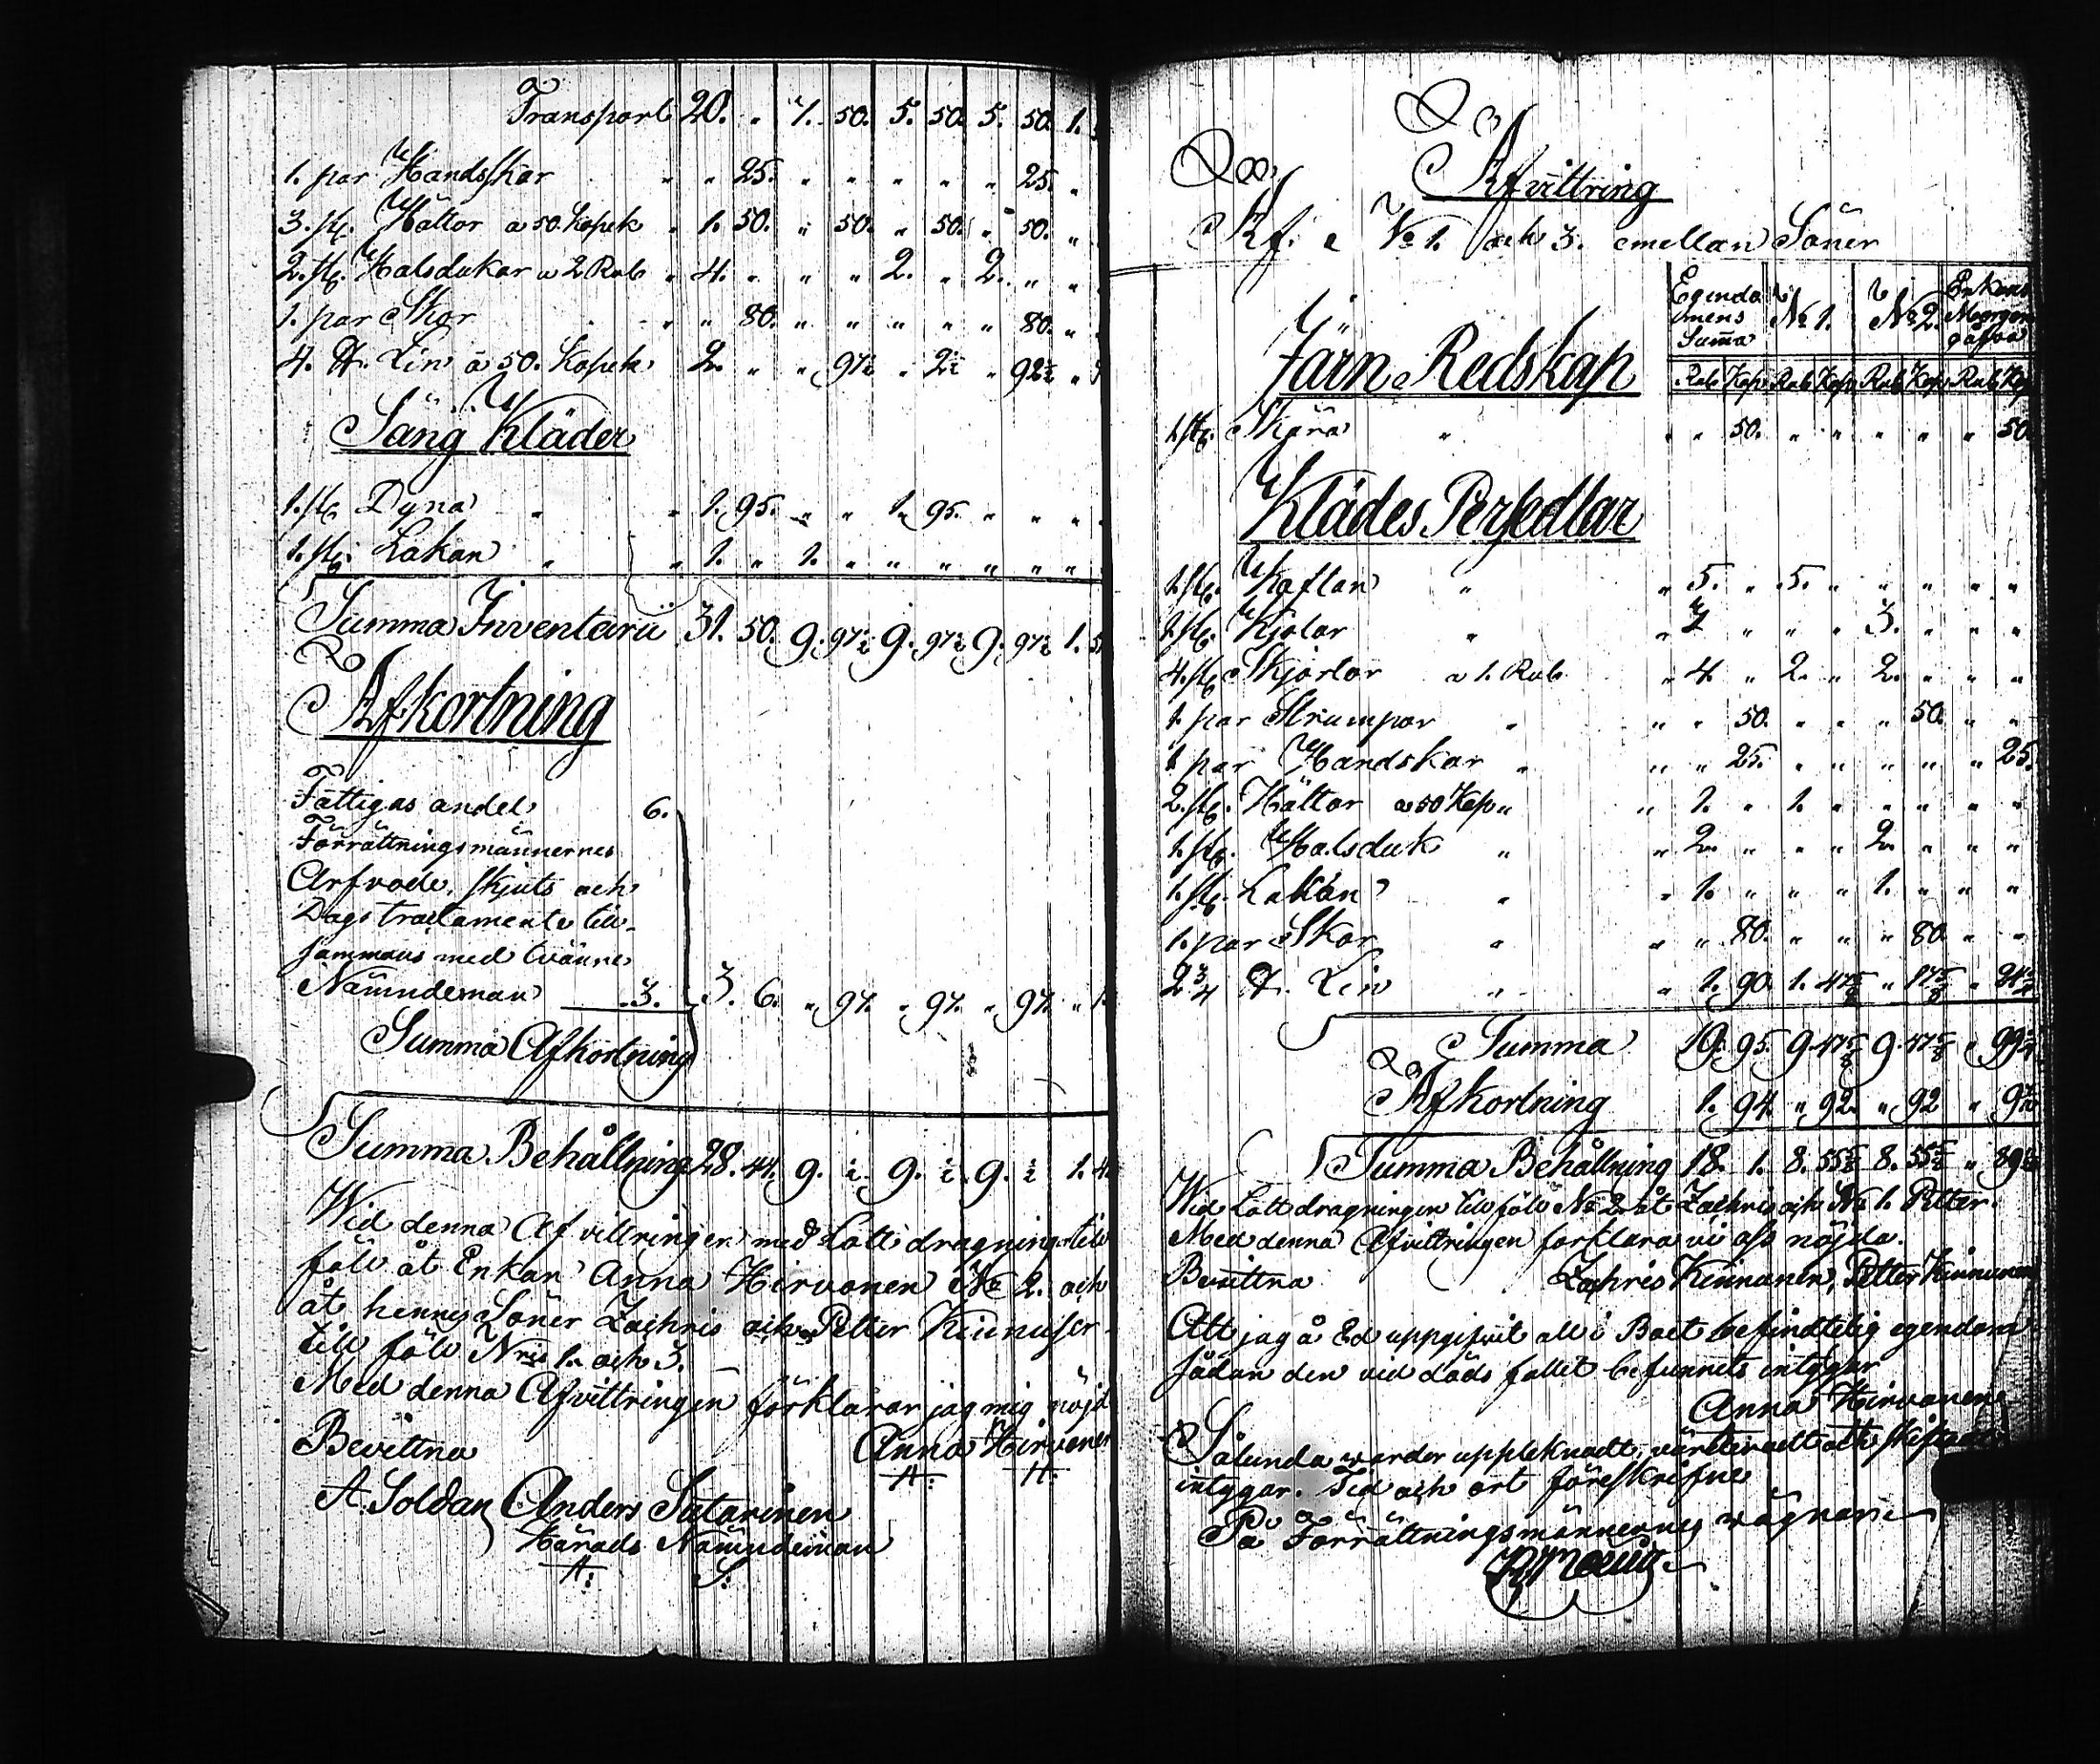 Transport 20. " 7. 50. 5. 50. 5. 50. 1.
1. par Handskar " " 25. " " " " " 25. "
3. st. Hättor a 50. Kopek " 1. 50. " 50. " 50. " 50. "
2. st. Halsdukar a 2 Rub " 4. " " " 2. " 2. " "
1. par Skor " " 80. " " " " " 80. "
4. ℔. Lin à 50. Kopek 2. " " 97½ " 2½ " 92½ "
Säng Kläder
1. st. Dyna " " 1. 95. " " 1. 95. " " "
1. st. Lakan " " 1. " 1. " " " " " "
Summa Inventarii 31. 50. 9. 97½ 9. 97½ 9. 97½ 1. 5
Afkortning
Fattigas andel 6.
Förrättningsmännernes
Arfvode, skjuts och
Dags tractamente till-
sammans med tvänne
Nämndemän 3. 3. 6. " 97. " 97. " 97. " 1
Summa Afkortning
Summa Behållning 28. 44. 9. ½. 9. ½. 9. ½ 1. 4
Wid denna Afvittringen med Lottdragning till
föll åt Enkan Anna Hirvonen No 2. och
åt hennes Söner Zachris och Petter Kinnuser
till föll Nris 1. och 3.
Med denna Afvittringen förklarar jag mig nöjd
Bevittna Anna Hirvonen
A: H:
A. Soldan Anders Sutarinen
Härads Nämndeman
A: S:
Afvittring
Af No 1. och 3. emellan Söner
Egendo
mens
Summa
No 1.
No 2.
Enkans
Morgon
gåfva
Rub Kop Rub Kop Rub Kop Rub Kop
Järn Redskap
1. st. Skära " " " 50. " " " " " 50.
Klädes Persedlar
1. st. Kaftan " " 5. " 5. " " " " "
2. st. Kjolar " " 3 " " " 3. " " "
4. st. Skjortor a 1. Rub " 4. " 2. " 2. " " "
1. par Strumpor " " " 50. " " " 50. " "
1 par Handskar " " " 25. " " " " " 25.
2. st. Hättor a 50 Kop " " 1. " 1. " " " " "
1. st. Halsduk " " 2. " " " 2. " " "
1. st. Lakan " " 1. " " " 1. " " "
1. par Skor " " " 80. " " " 80. " "
2¾ ℔. Lin " " 1. 90. 1. 47⅝ " 17⅝ " 24¾
Summa 19. 95. 9. 47⅝ 9. 47⅝ " 99¾
Afkortning 1. 94. " 92. " 92 "
Summa Behållning 18. 1. 8. 55⅝ 8. 55⅝ "
Wid Lottdragningen tillföll No 2. åt Zachris och No 1. Petter.
Med denna Afvittringen förklara vi oss nöjda.
Bevittna Zachris Kinnunen, Petter Kinnunen
Att jag å Ed uppgifvit all i Boet befindtelig egendom
sådan den vid döds fallet befunnits intygar
Anna Hirvonen
Sålunda warder upptecknadt, värderadt och skiftadt
intygar. Tid och ort föreskrifne
På Förrättningsmännernes wägnar